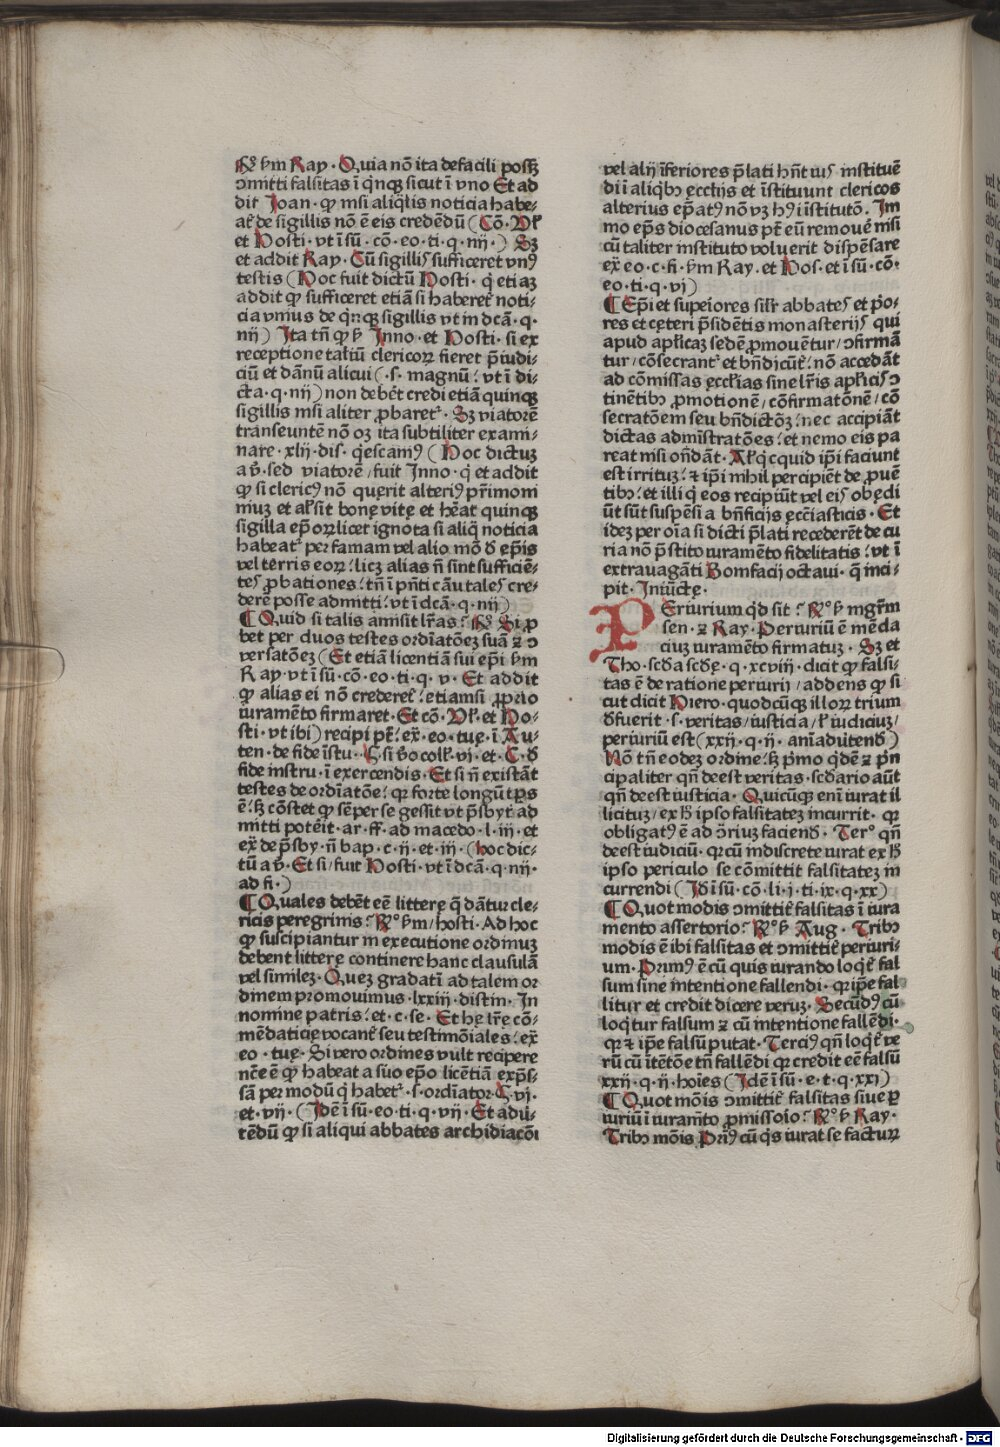 vm Ray. Quia nō ita defacili possꝫ
ɔmitti falsitas ī q̄nqꝫ sicut ī vno Et ad
dit Joan. qp nisi aliq̄lis noticia habe⸗
at̄ de sigillis nō ē eis credēdū (Cō.
et Hosti. vt ī sū. cō. eo. ti. q. iiij.) Sꝫ
et addit Ray. Cū sigillis sufficeret vnꝰ
testis (Hoc fuit dictū Hosti. q̄ etiaꝫ
addit qp sufficeret etiā si haberet̄ noti⸗
cia vnius de q̄nqꝫ sigillis vt in dcā. q.
iiij) Ita tn̄ qp ẜ Inno. et Hosti. si ex
receptione taliū clericoꝝ fieret p̄iudi⸗
ciū et dānū alicui (.s. magnū. vt ī di⸗
cta. q. iiij) non debēt credi etiā quinqꝫ
sigillis nisi aliter ꝓbaret̄. Sꝫ viatorē
transeuntē nō oꝫ ita subtiliter exami⸗
nare. xlij. dis. q̄escamꝰ (Hoc dictuꝫ
a ꝟ. sed viatorē, fuit Inno. q̄ et addit
qp si clericꝰ nō querit alteriꝰ pr̄imoni
niuꝫ et al̄sit bonę vitę et hēat quinqꝫ
sigilla ep̄oꝝ licet ignota si aliq̄ noticia
habeat̄ per famam vel alio mō ẟ ep̄is
vel terris eoꝝ. licꝫ alias n̄ sint sufficiē⸗
tes ꝓbationes. tn̄ ī pn̄ti cāu tales cre⸗
dere posse admitti. vt ī dcā. q. iiij)
¶ Quid si talis amisit lr̄as. Si ꝓ
bet per duos testes ordīatōeꝫ suā ⁊ ɔ
versatōeꝫ (Et etiā licentiā sui ep̄i ẜm
Ray. vt ī sū. cō. eo. ti. q. v. Et addit
qp alias ei nō crederet̄. etiamsi ꝓprio
iuramēto firmaret. Et cō. et Ho⸗
sti. vt ibi) recipi pt̄. ex̄. eo. tuę. ī Au⸗
ten. de fide īstu. . si ꝟo coll̄. vj. et. C. ẟ
fide instru. ī exercendis. Et si n̄ existāt
testes de ordīatōe. qr forte longū tp̄s
ē. sꝫ cōstet qp sēper se gessit vt p̄sbyt̄ ad
mitti potēit. ar. ff. ad macedo. l. iij. et
ex̄. de p̄sby. n̄ bap. c. ij. et. iij. (hoc dic⸗
tū a ꝟ. Et si, fuit Hosti. vt ī dcā. q. iiij.
ad fi.)
¶ Quales debēt eē litterę q̄ dātur cle⸗
ricis peregrinis. Rꝰ ẜm, hosti. Ad hoc
qp suscipiantur in executione ordinuꝫ
debent litterę continere hanc clausulā
vel similez. Queꝫ gradatī ad talem or
dinem promouimus. lxxiij. distin. In
nomine patris. et. c. se. Et hę lr̄ę cō⸗
mēdaticię vocant̄ seu testimōiales. ex̄
eo. tuę. Si vero ordines vult recipere
nēē ē qp habeat a suo ep̄o licētiā exp̄s⸗
sā per modū q̄ habet̄. s. ordīator. . vj.
et. vij. (Idē ī sū. eo. ti. q. vij. Et adu⸗
tēdū qp si aliqui abbates archidiacōi
vel alij īferiores p̄lati hn̄t ius instituē
di ī aliqbꝰ eccl̄ijs et īstituunt clericos
alterius ep̄atꝰ nō vꝫ hꝰi īstitutō. Im
mo ep̄s diocesanus pt̄ eū remouē nisi
cū taliter instituto voluerit dispēsare
ex̄. eo. c. fi. ẜm Ray. et Hos. et ī sū. cō.
eo. ti. q. vj)
¶ Ep̄i et supeiores silr̄ abbates et p̄o⸗
res et cęteri p̄sidētis monasterijs qui
apud apl̄icaꝫ sedē ꝓmouētur, ɔfirmā
tur, cōsecrant̄ et bn̄dicūt̄. nō accedāt
ad cōmissas eccl̄ias sine lr̄is apl̄icis ɔ
tinētibꝰ ꝓmotionē, cōfirmatōnē, cō
secratōem seu bn̄dictōꝫ. nec accipiāt
dictas admīstratōes. et nemo eis pa
reat nisi on̄dāt. Al̄ q̄cquid ip̄i faciunt
est irrituꝫ. ⁊ ip̄i nihil percipiēt de ꝓuē
tibꝰ. et illi q̄ eos recipiūt vel eis obędi
ūt sūt suspēsi a bn̄ficijs ecc̄iasticis. Et
ideꝫ per oīa si dicti p̄lati recederēt de cu
ria nō p̄stito iuramēto fidelitatis. vt ī
extrauagāti Bonifacij octaui. q̄ inci⸗
pit. Iniūctę.
PEriurium qd̄ sit. Rꝰ ẜ mgr̄m
sen. ⁊ Ray. Periuriū ē mēda
ciuꝫ iuramēto firmatuꝫ. Sꝫ et
Tho. scd̄a scd̄ę. q. xcviij. dicit qp falsi⸗
tas ē de ratione periurij, addens qp si
cut dicit Hiero. quodcūqꝫ illoꝝ trium
defuerit. s. veritas, iusticia, l̄ iudiciuꝫ,
periuriū est (xxij. q. ij. aniaduertend̄)
Nō tn̄ eodeꝫ ordine. sꝫ p̄mo q̄dē ⁊ p̄n
cipaliter qn̄ deest veritas. scd̄ario aūt
qn̄ deest iusticia. Quicūqꝫ enī iurat il
licituꝫ, ex h̄ ipso falsitateꝫ incurrit. qr
obligatꝰ ē ad ɔ̄riuꝫ faciend̄. Terꝰ qn̄
deest iudiciū. qr cū indiscrete iurat ex h̄
ipso periculo se cōmittit falsitateꝫ in
currendi (Id ī sū. cō. li. j. ti. ix. q. xx)
¶ Quot modis ɔmittit̄ falsitas ī iura
mento assertorio. Rꝰ ẜ Aug. Tribꝰ
modis ē ibi falsitas et ɔmittit̄ periuri⸗
um. Primꝰ ē cū quis iurando loqt̄ fal
sum sine intentione fallendi. qr ip̄e fal
litur et credit dicere veruꝫ. Secūdꝰ cū
loqtur falsum ⁊ cū intentione fallēdi.
qr ⁊ ip̄e falsū putat. Terciꝰ qn̄ loqt̄ ve
rū cū ītētōe tn̄ fallēdi qr credit eē falsū
xxij. q. ij. hoīes (Idē ī sū. e. t. q. xxi)
¶ Quot mōis ɔmittit̄ falsitas siue ꝑ
iuriū ī iuram̄to ꝓmissoio. Rꝰ ẜ Ray.
Tribꝰ mōis Prīꝰ cū q̄s iurat se facturꝝ
Digitalisierung gefördert durch die Deutsche Forschungsgemeinschaft - DFG